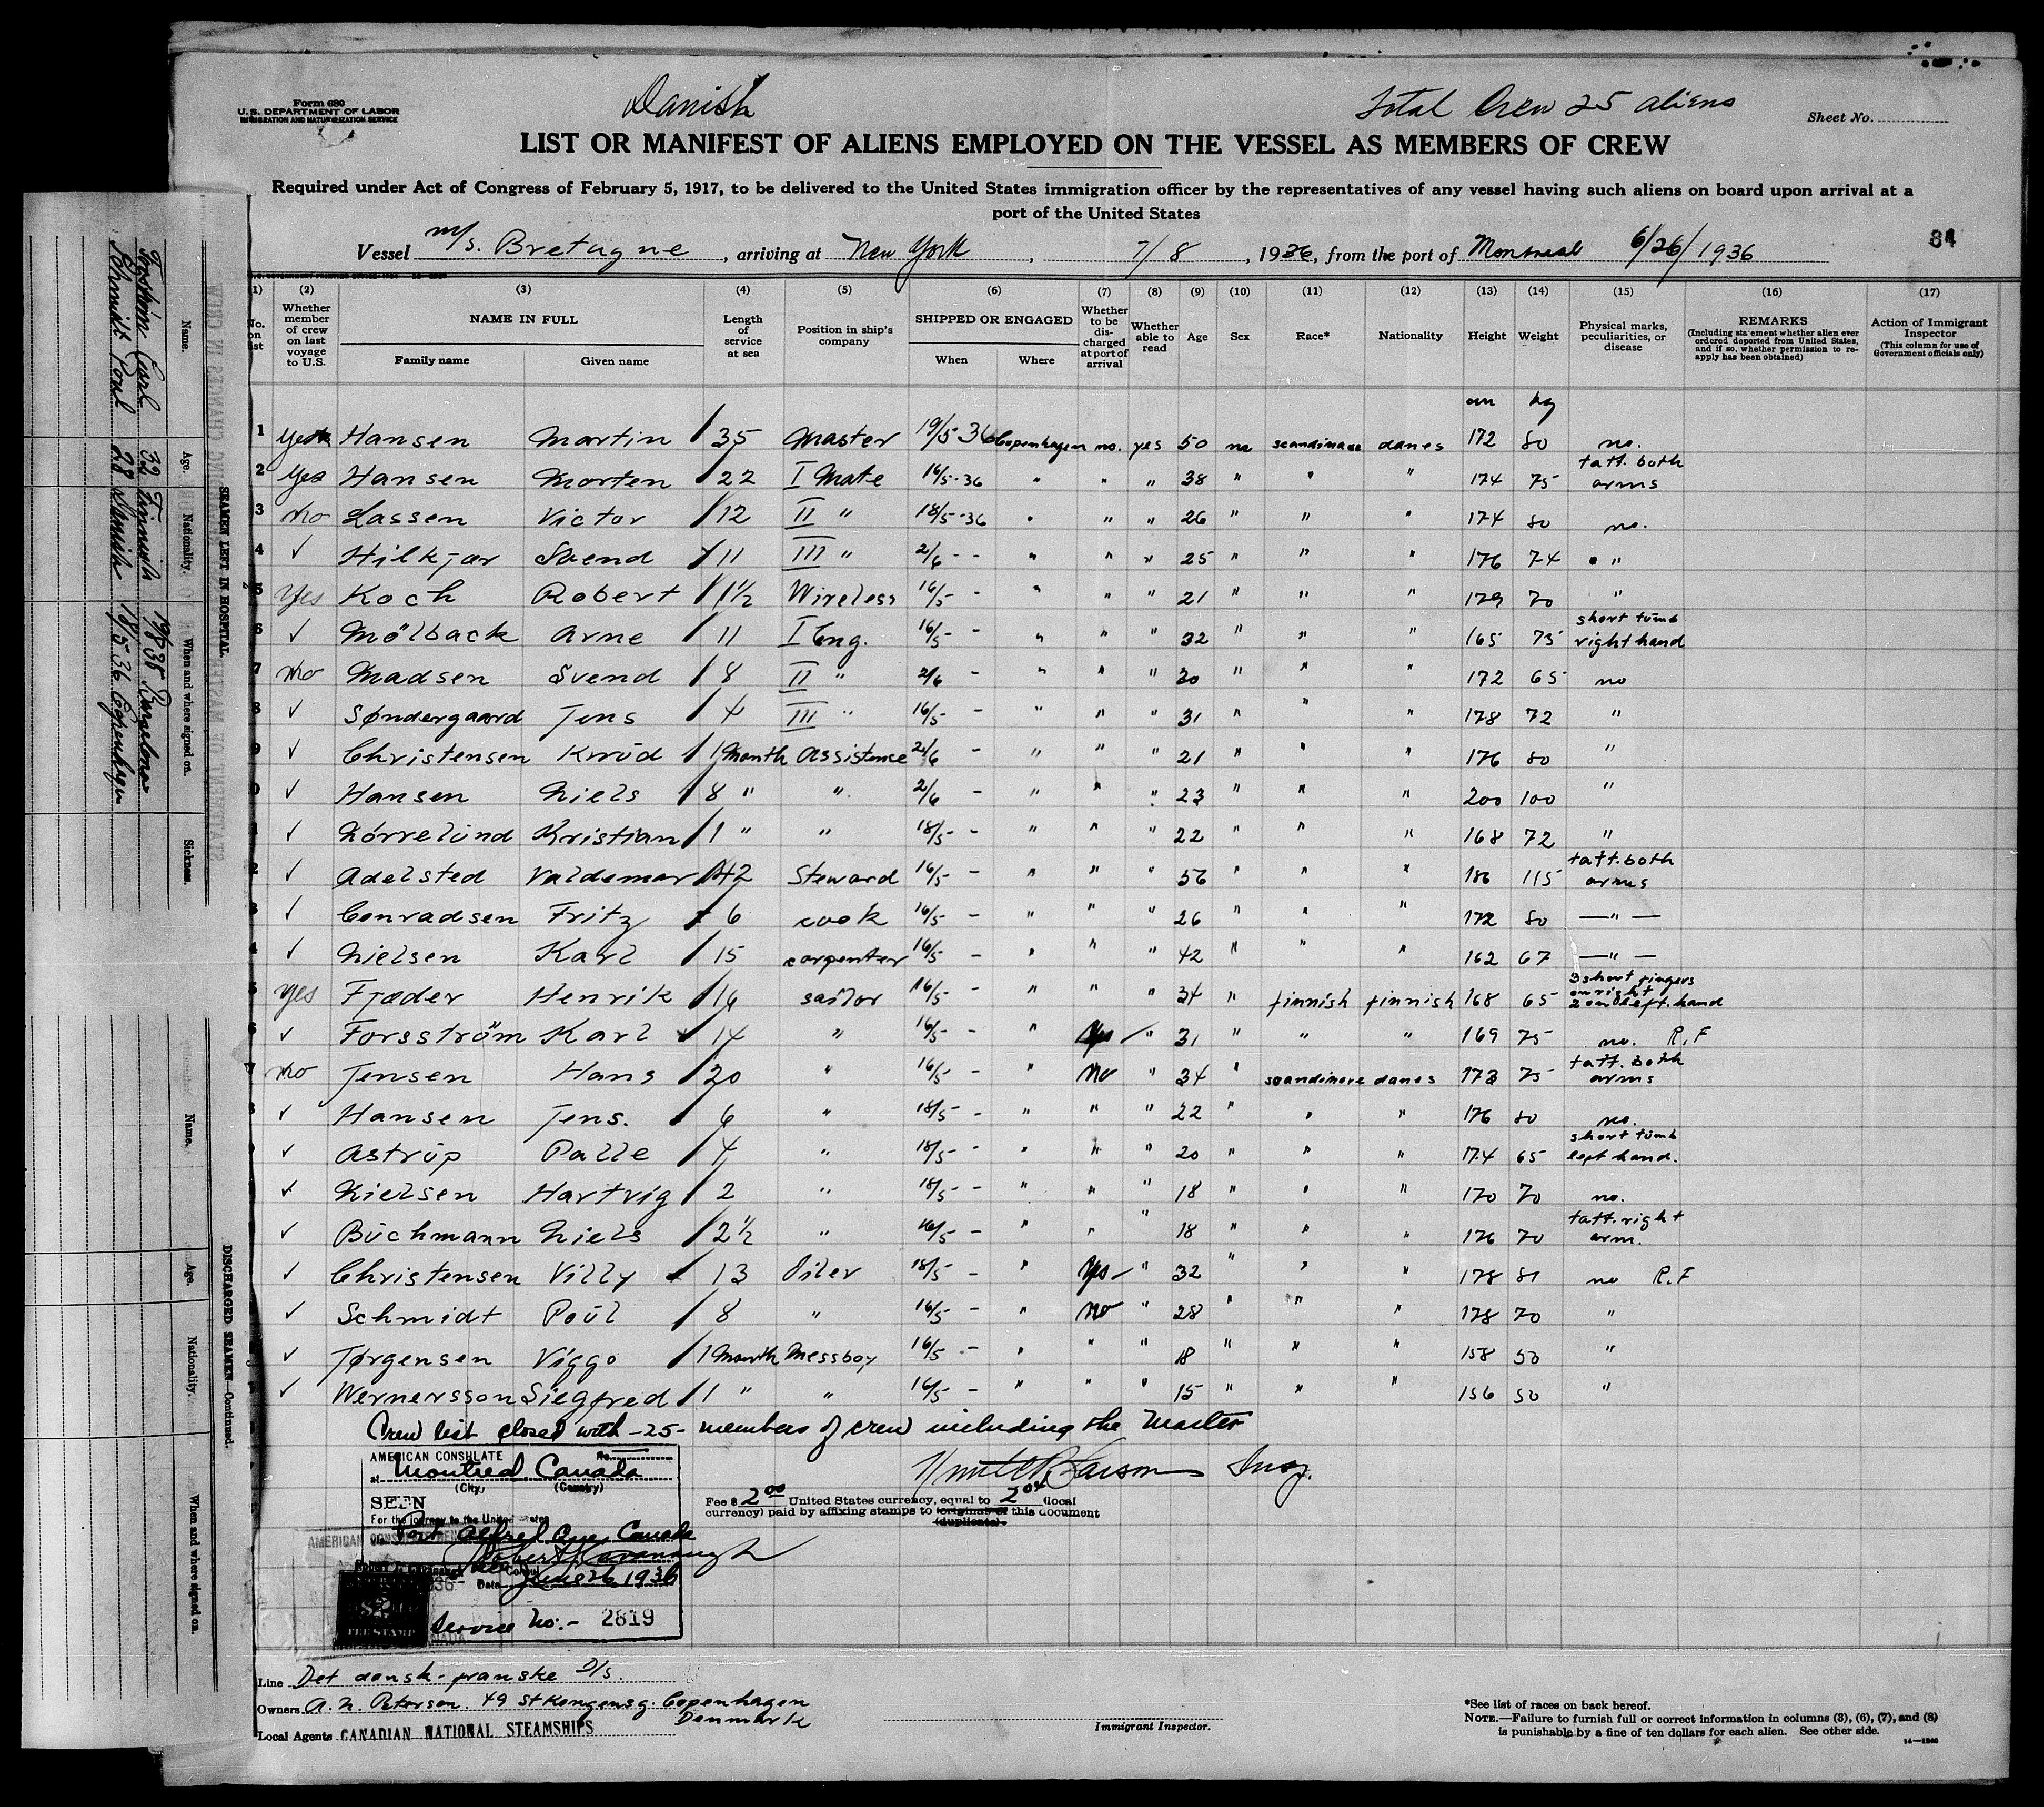 Form 680
U. S. DEPARTMENT OF LABOR
IMMIGRATION AND NATURALIZATION SERVICE
Danish
Total Crew 25 aliens
Sheet No.
LIST OR MANIFEST OF ALIENS EMPLOYED ON THE VESSEL AS MEMBERS OF CREW
Required under Act of Congress of February 5, 1917, to be delivered to the United States immigration officer by the representatives of any vessel having such aliens on board upon arrival at a
port of the United States
Vessel m/s. Bretagne, arriving at New York, 7/8, 1936, from the port of Montreal 6/26/1936
84
(1) (2) (3) (4) (5) (6) (7) (8) (9) (10) (11) (12) (13) (14) (15) (16) (17)
No. on list
Whether member of crew on last voyage to U.S.
NAME IN FULL
Family name Given name
Length of service at sea
Position in ship's company
SHIPPED OR ENGAGED
When Where
Whether to be discharged at port of arrival
Whether able to read
Age
Sex
Race*
Nationality
Height
Weight
Physical marks, peculiarities, or disease
REMARKS
(Including statement whether alien ever ordered deported from United States, and if so, whether permission to reapply has been obtained)
Action of Immigrant Inspector
(This column for use of Government officials only)
cm kg
1 yes Hansen Martin 35 Master 19/5-36 Copenhagen no. yes 50 scandinave danes 172 80 no.
2 yes Hansen Morten 22 I Mate 16/5-36 " " " 38 " " " 174 75 tatt. both arms
3 no Lassen Victor 12 II " 18/5-36 " " " 26 " " " 174 80 no.
4 ✓ Hilkjær Svend 11 III " 2/6 - - " " " 25 " " " 176 74 "
5 yes Koch Robert 1½ Wireless 16/5 - " " " 21 " " " 179 70 "
6 ✓ Mölback Arne 11 I Eng. 16/5 - - " " " 32 " " " 165 75 short tumb right hand
7 no Madsen Svend 8 II " 2/6 - " " " 30 " " " 172 65 no
8 ✓ Søndergaard Jens 4 III " 16/5 - " " " 31 " " " 178 72 "
9 ✓ Christensen Knud 1 Month Assistence 2/6 - " " " 21 " " " 176 80 "
0 ✓ Hansen Niels 8 " " 2/6 - " " " 23 " " " 200 100 "
1 ✓ Nörrelund Kristian 1 " " 18/5 - " " " 22 " " " 168 72 "
2 ✓ Adelsted Valdemar 42 Steward 16/5 - " " " 56 " " " 186 115 tatt. both arms
3 ✓ Conradsen Fritz 6 cook 16/5 - " " " 26 " " " 172 80 — " —
4 ✓ Nielsen Karl 15 carpenter 16/5 - " " " 42 " " " 162 67 — " —
5 yes Fjæder Henrik 16 sailor 16/5 - " " " 34 " finnish finnish 168 65 3 short fingers on right 2 on left. hand
6 ✓ Forsström Karl 14 " 16/5 - " yes " 31 " " " 169 75 no. R.F
7 no Jensen Hans 20 " 16/5 - " no " 34 " scandinave danes 173 75 tatt. both arms
8 ✓ Hansen Jens. 6 " 18/5 - " " " 22 " " " 176 80 no.
9 ✓ Astrup Palle 4 " 18/5 - " " " 20 " " " 174 65 short tumb left hand.
✓ Nielsen Hartvig 2 " 18/5 - " " " 18 " " " 170 70 no.
✓ Buchmann Niels 2½ " 16/5 - " " " 18 " " " 176 70 tatt. right arm.
✓ Christensen Villy 13 Oiler 18/5 - " yes " 32 " " " 178 81 no R.F
✓ Schmidt Poul 8 " 16/5 - " no " 28 " " " 178 70 "
✓ Jørgensen Viggo 1 Month Messboy 16/5 - " " " 18 " " " 158 50 "
✓ Wernersson Siegfred 1 " " 16/5 - " " " 15 " " " 156 50 "
Crew list closed with -25- members of crew including the Master
AMERICAN CONSULATE No.
at Montreal, Canada
(City) (Country)
SEEN
For the journey to the United States
Port Alfred Que, Canada
Date June 26, 1936
Service No:- 2819
Fee $ 2.00 United States currency, equal to 2.04 (local
currency) paid by affixing stamps to original of this document
(duplicate)
Line Det dansk-franske D/s.
Owners A. N. Petersen. 49 St Kongensg. Copenhagen
Denmark
Local Agents CANADIAN NATIONAL STEAMSHIPS
Immigrant Inspector.
*See list of races on back hereof.
NOTE.—Failure to furnish full or correct information in columns (3), (6), (7), and (8)
is punishable by a fine of ten dollars for each alien. See other side.
14—1240
SEAMEN LEFT IN HOSPITAL
Name. Age. Nationality. When and where signed on. Sickness.
Forsström Carl 32 Finnish 19/8 35 Barcelona
Schmidt Poul 28 Danish 18/5 36 Copenhagen
DISCHARGED SEAMEN—Continued.
Name. Age. Nationality. When and where signed on.